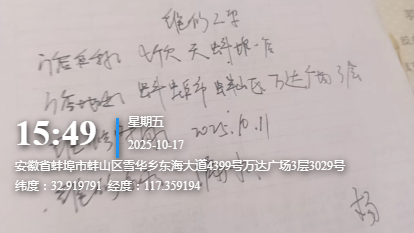 维修工单
门店名称: 七欣天蚌埠一店
门店地址: 蚌埠市蚌山区万达广场3层
2025.10.11
15:49
星期五
2025-10-17
安徽省蚌埠市蚌山区雪华乡东海大道4399号万达广场3层3029号
纬度：32.919791 经度：117.359194
杨